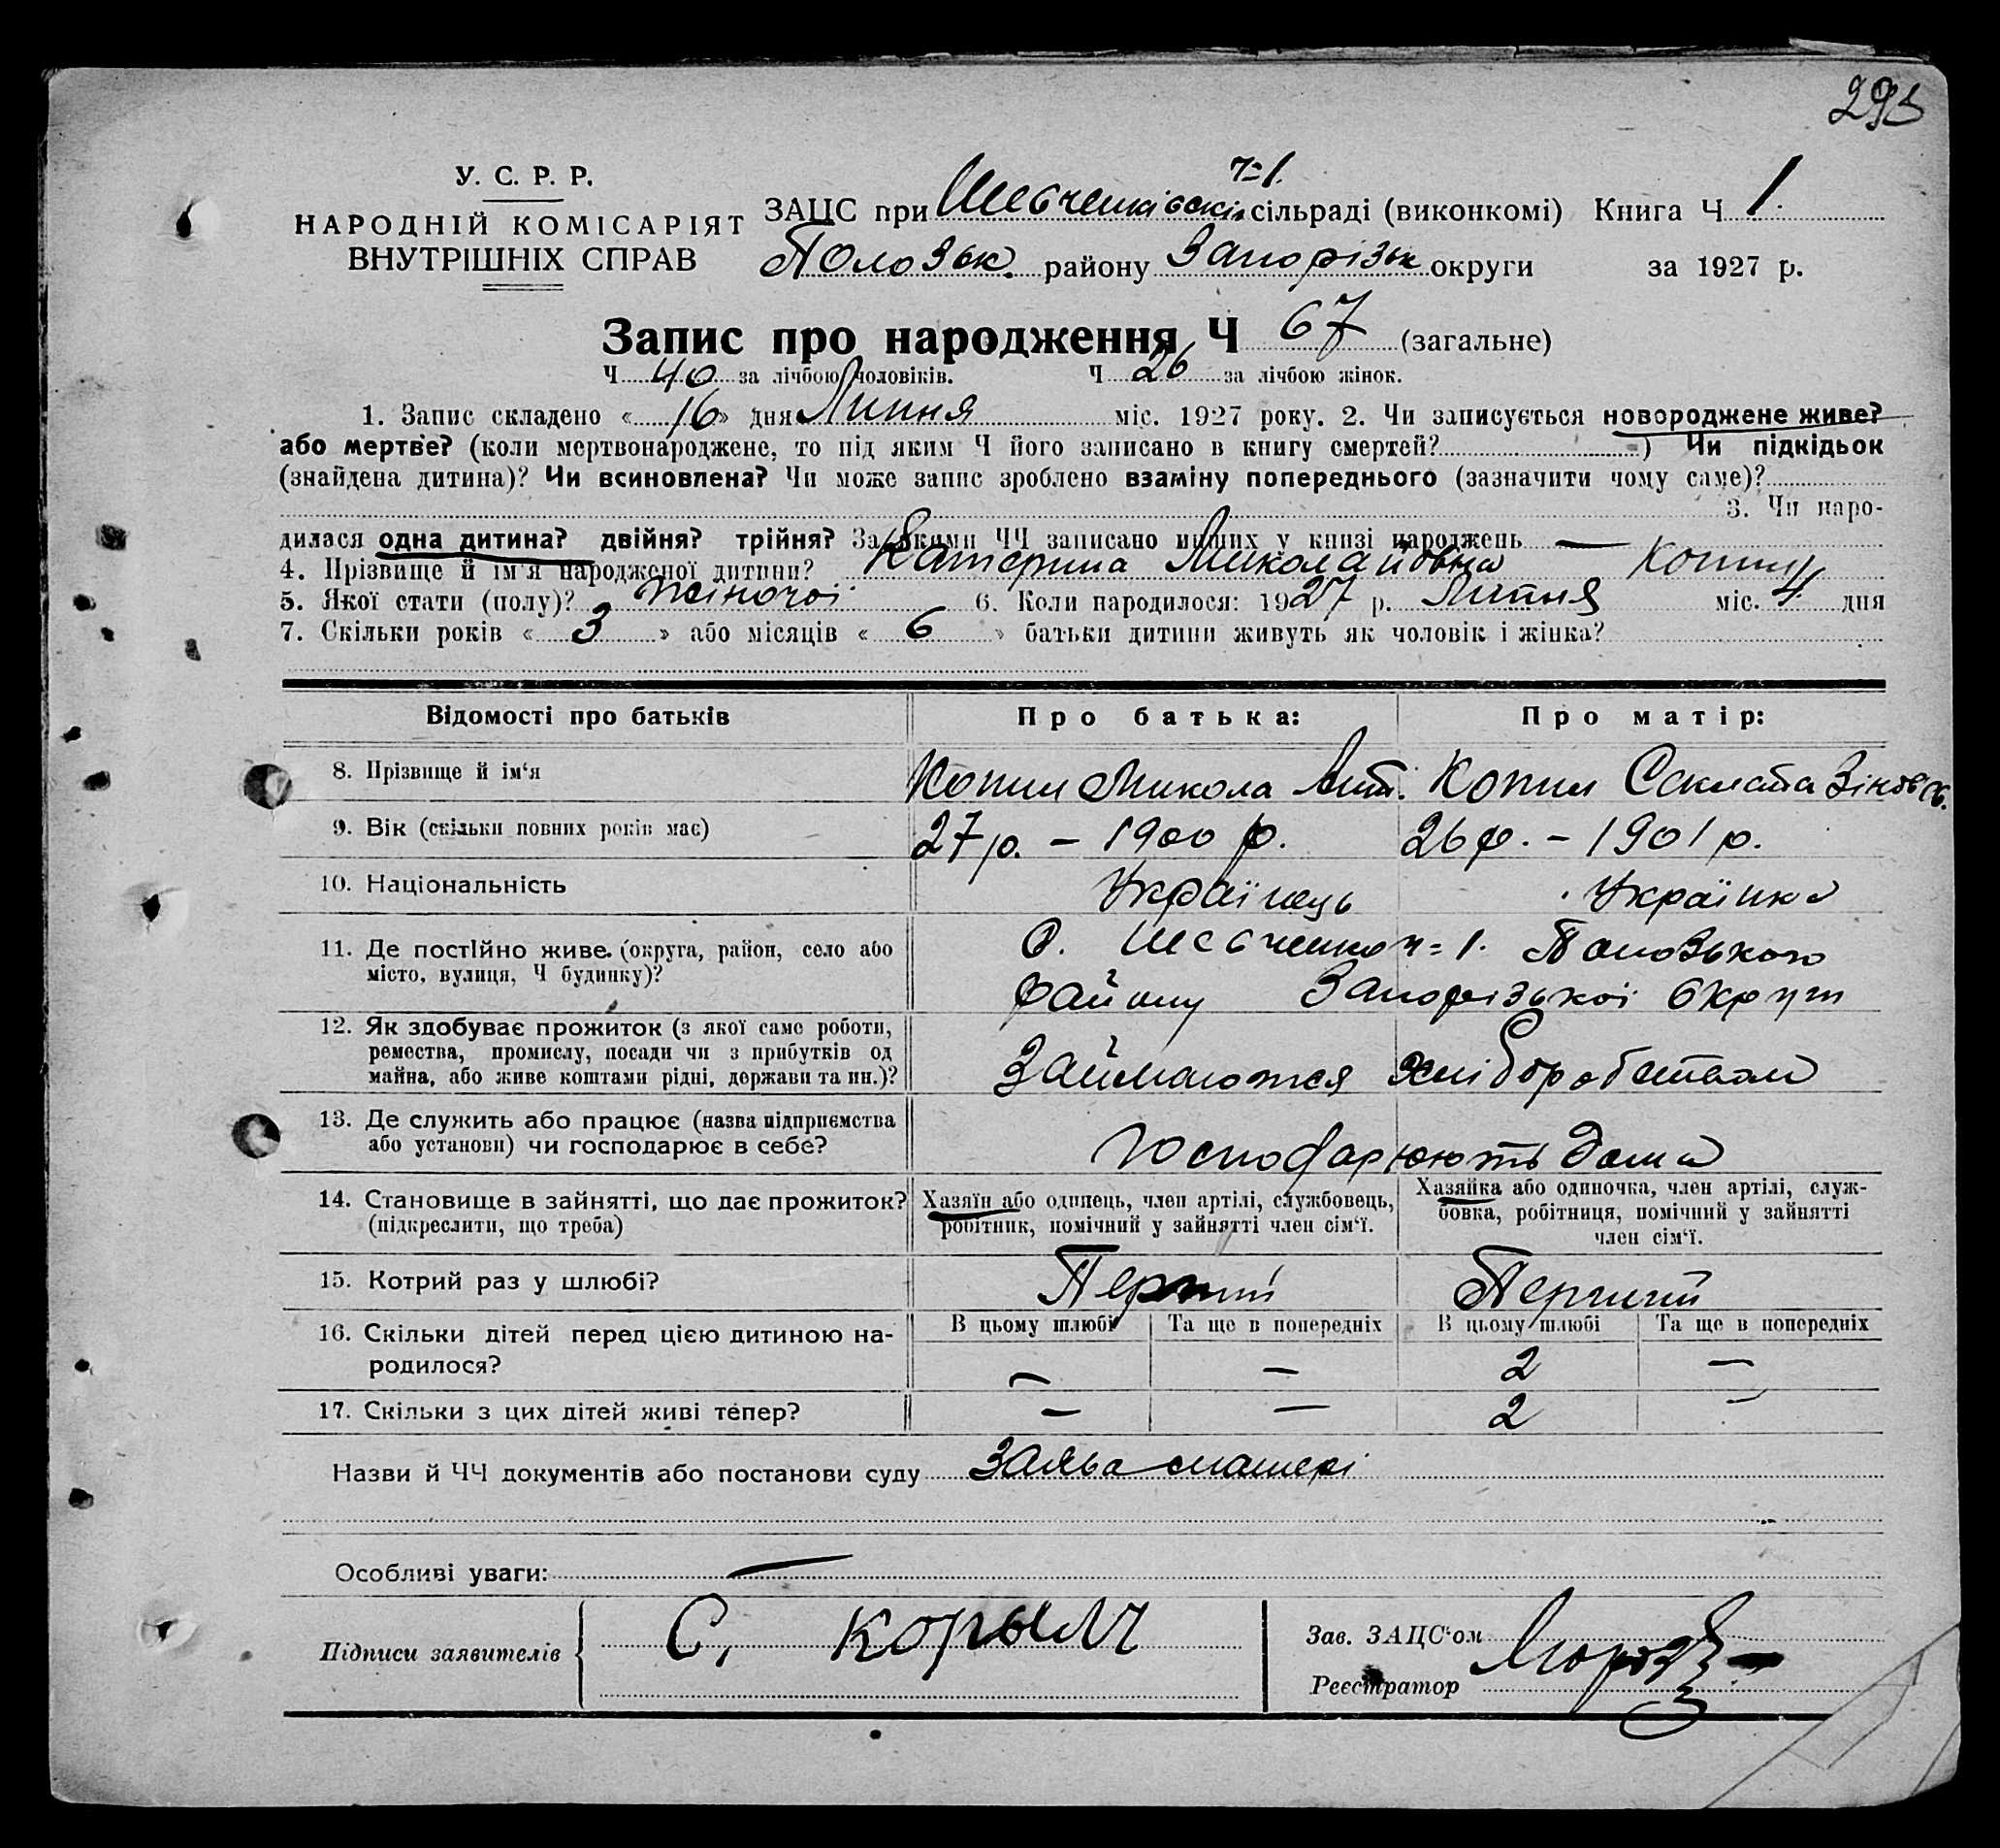 293
У. С. Р. Р.
НАРОДНІЙ КОМІСАРІЯТ
ВНУТРІШНІХ СПРАВ
ч=1.
ЗАЦС при Шевченківській сільраді (виконкомі) Книга Ч 1.
Полозьк. району Запорізьк округи за 1927 р.
Запис про народження Ч 67 (загальне)
Ч 40 за лічбою чоловіків. Ч 26 за лічбою жінок.
1. Запис складено « 16 » дня Липня міс. 1927 року. 2. Чи записується новороджене живе?
або мертве? (коли мертвонароджене, то під яким Ч його записано в книгу смертей? ) Чи підкідьок
(знайдена дитина)? Чи всиновлена? Чи може запис зроблено взаміну попереднього (зазначити чому саме)?
3. Чи наро-
дилася одна дитина? двійня? трійня? За якими ЧЧ записано инших у книзі народжень —
4. Прізвище й ім'я народженої дитини? Катерина Миколайовна Копил
5. Якої стати (полу)? жіночої 6. Коли народилося: 1927 р. Липня міс. 4 дня
7. Скільки років « 3 » або місяців « 6 » батьки дитини живуть як чоловік і жінка?
Відомості про батьків Про батька: Про матір:
8. Прізвище й ім'я Копил Микола Ант. Копил Секлета Зіновьєв.
9. Вік (скільки повних років має) 27 р. – 1900 р. 26 р. – 1901 р.
10. Національність Українець Українка
11. Де постійно живе (округа, район, село або С. Шевченко ч=1. Полозького
місто, вулиця, Ч будинку)? району Запорізької округи
12. Як здобуває прожиток (з якої саме роботи,
ремества, промислу, посади чи з прибутків од Займаються хліборобством
майна, або живе коштами рідні, держави та ин.)?
13. Де служить або працює (назва підприємства
або установи) чи господарює в себе? господарюють дома
14. Становище в зайнятті, що дає прожиток? Хазяїн або одинець, член артілі, службовець, Хазяйка або одиночка, член артілі, служ-
(підкреслити, що треба) робітник, помічний у зайнятті член сім'ї. бовка, робітниця, помічний у зайнятті
член сім'ї.
15. Котрий раз у шлюбі? Перший Перший
16. Скільки дітей перед цією дитиною на- В цьому шлюбі Та ще в попередніх В цьому шлюбі Та ще в попередніх
родилося? — — 2 —
17. Скільки з цих дітей живі тепер? — — 2 —
Назви й ЧЧ документів або постанови суду Заява матері
Особливі уваги: —
Підписи заявителів С,
Зав. ЗАЦС'ом
Реєстратор